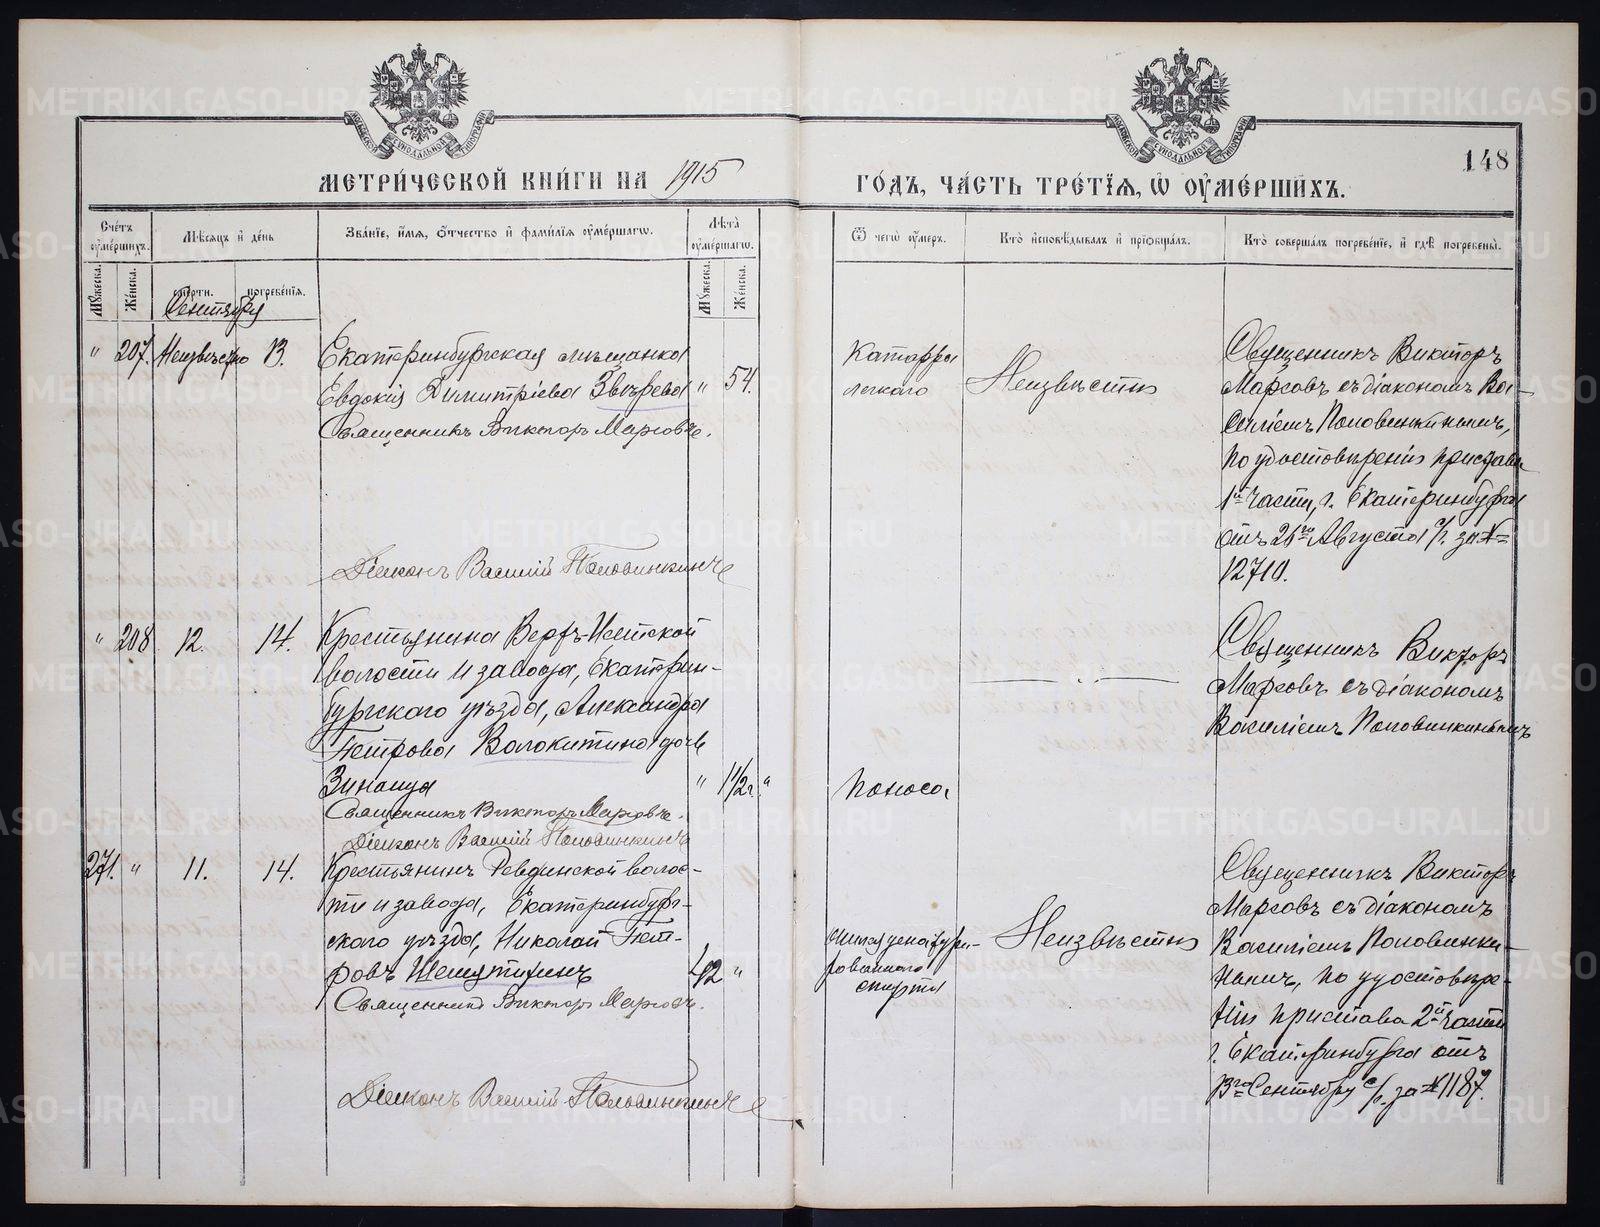 148
МЕТРИ́ЧЕСКОЙ КНИ́ГИ НА 1915 ГО́ДЪ, ЧА́СТЬ ТРЕ́ТЇѦ, Ѿ ОУМЕ́РШИХЪ.
Сче́тъ оуме́ршихъ.
Мꙋ́жеска.
Же́нска.
Мѣ́сѧцъ и҆ де́нь
сме́рти.
погребе́нїѧ.
Зва́нїе, и҆́мѧ, ѻ҆́тчество и҆ фами́лїѧ оуме́ршагѡ.
Лѣ́та оуме́ршагѡ.
Мꙋ́жеска.
Же́нска.
Ѿ чегѡ̀ оу́меръ.
Кто̀ и҆сповѣ́дывалъ и҆ прїѡбща́лъ.
Кто̀ соверша́лъ погребе́нїе, и҆ гдѣ̀ погребены̀.
Сентября
" 207. Неизвѣстно 13.
Екатеринбургская мѣщанка
Евдокія Димитріева Звѣрева " 54.
Священникъ Викторъ Марсовъ.
Діаконъ Василій Половинкинъ
Катарра
легкаго
Неизвѣстно
Священникъ Викторъ
Марсовъ съ діакономъ Ва-
силіемъ Половинкинымъ,
по удостовѣренію пристава
1й части, г. Екатеринбурга
отъ 26го Августа с/г. за №
12710.
" 208 12. 14.
Крестьянина Верхъ-Исетской
волости и завода, Екатерин-
бургскаго уѣзда, Александра
Петрова Волокитина дочь
Зинаида " 1 1/2 г. "
Священникъ Викторъ Марсовъ.
Діаконъ Василій Половинкинъ
Поноса
Священникъ Викторъ
Марсовъ съ діакономъ
Василіемъ Половинкинымъ
271. " 11. 14.
Крестьянинъ Ревдинской волос-
ти и завода, Екатеринбург-
скаго уѣзда, Николай Пет-
ровъ 42 "
Священникъ Викторъ Марсовъ.
Діаконъ Василій Половинкинъ
денатури-
рованнаго
спирта
Неизвѣстно
Священникъ Викторъ
Марсовъ съ діакономъ
Василіемъ Половинки-
нымъ, по удостовѣре-
нію пристава 2й части
г. Екатеринбурга отъ
13го Сентября с/г. за № 1187.
METRIKI.GASO-URAL.RU